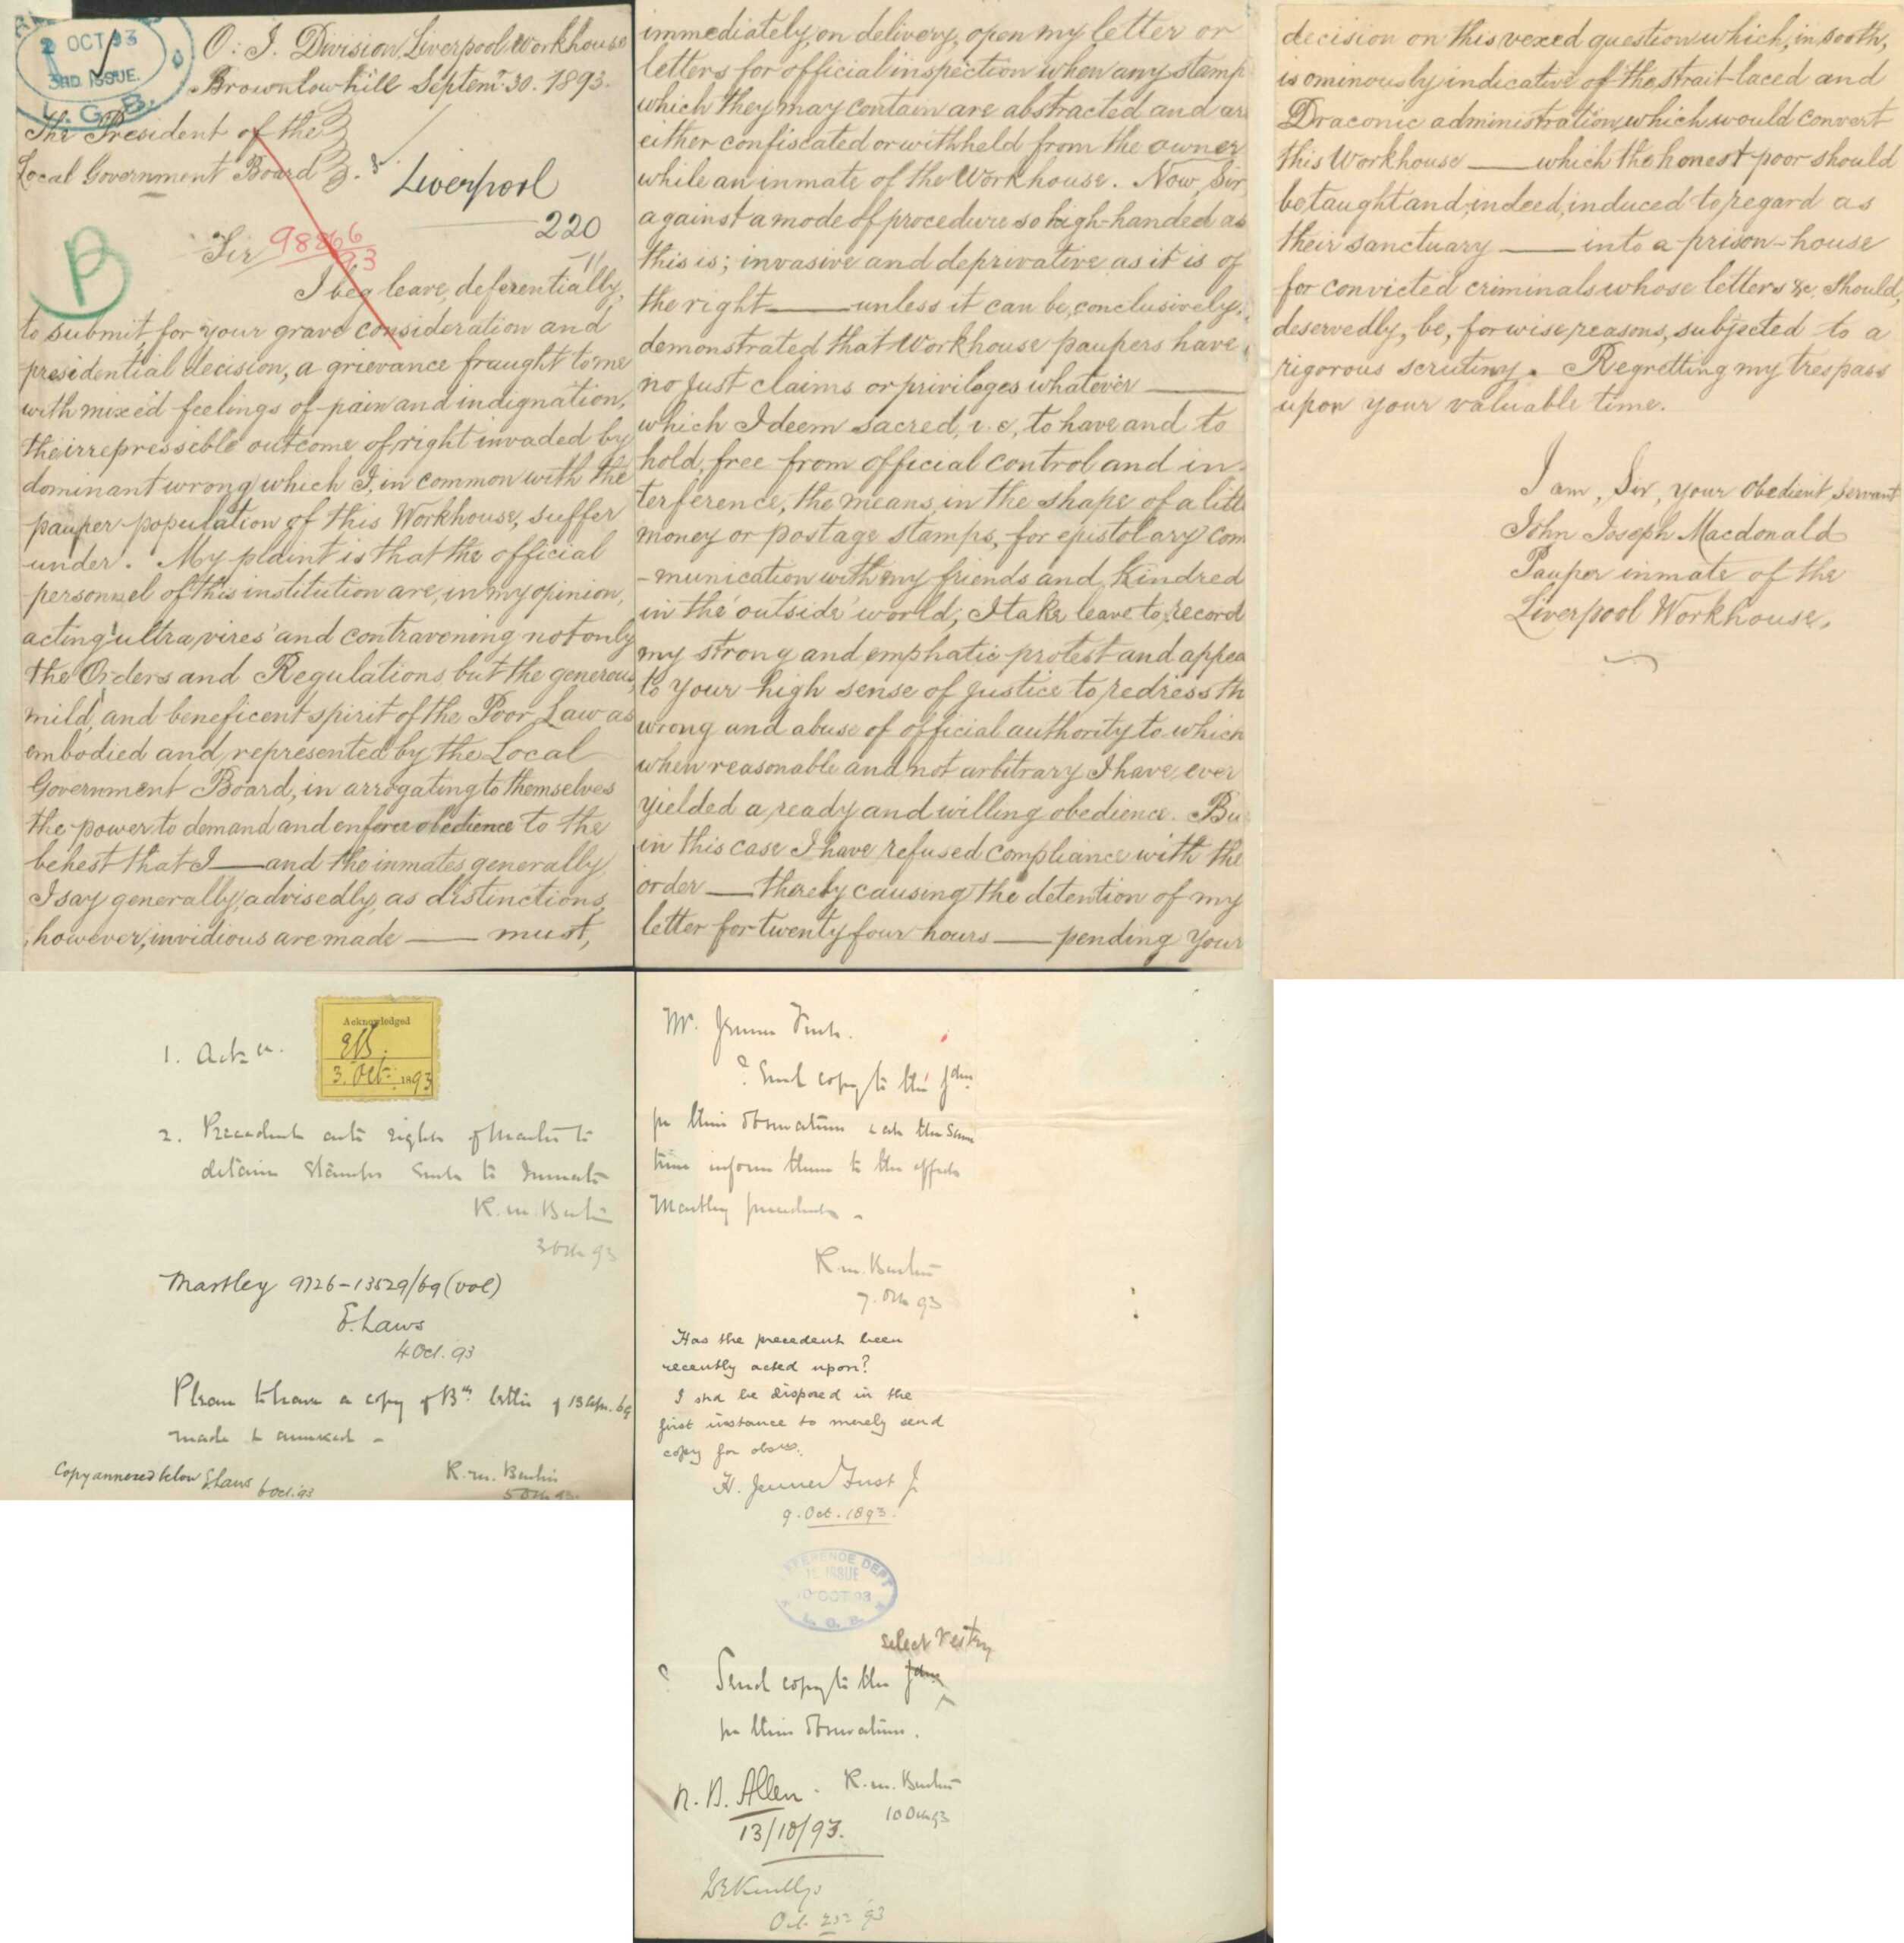 2 OCT 93
3RD ISSUE.
L.G.B.
O: I. Division, Liverpool Workhouse
Brownlow hill Septemr. 30. 1893.
The President of the
Local Government Board
Liverpool
220
Sir
98866
93
B
I beg leave, deferentially,
to submit, for your grave consideration and
presidential decision, a grievance fraught to me
with mixed feelings of pain and indignation,
the irrepressible outcome of right invaded by
dominant wrong which I, in common with the
pauper population of this Workhouse, suffer
under. My plaint is that the official
personnel of this institution are, in my opinion,
acting 'ultra vires' and contravening not only
the Orders and Regulations but the generous,
mild, and beneficent spirit of the Poor Law as
embodied and represented by the Local
Government Board, in arrogating to themselves
the power to demand and enforce obedience to the
behest that I — and the inmates generally,
I say generally, advisedly, as distinctions,
however, invidious are made — must,
immediately, on delivery, open my letter or
letters for official inspection when any stamp
which they may contain are abstracted and ar
either confiscated or withheld from the owner
while an inmate of the Workhouse. Now, Sir,
against a mode of procedure so high-handed as
this is; invasive and deprivative as it is of
the right — unless it can be, conclusively,
demonstrated that Workhouse paupers have
no just claims or privileges whatever —
which I deem sacred, i.e, to have and to
hold, free from official control and in-
terference, the means, in the shape of a littl
money or postage stamps, for epistolary com
-munication with my friends and kindred
in the 'outside' world; I take leave to record
my strong and emphatic protest and appea
to your high sense of justice to redress th
wrong and abuse of official authority to which
when reasonable and not arbitrary I have ever
yielded a ready and willing obedience. Bu
in this case I have refused compliance with the
order — thereby causing the detention of my
letter for twenty four hours — pending your
decision on this vexed question which, in sooth,
is ominously indicative of the strait-laced and
Draconic administration which would convert
this Workhouse — which the honest poor should
be taught and, indeed, induced to regard as
their sanctuary — into a prison-house
for convicted criminals whose letters &c. should,
deservedly, be, for wise reasons, subjected to a
rigorous scrutiny. Regretting my trespass
upon your valuable time.
I am, Sir, your obedient servant
John Joseph Macdonald
Pauper inmate of the
Liverpool Workhouse.
1. Ack
Acknowledged
EB.
3. Oct. 1893
2. Precedent as to rights of Master to
detain stamps sent to Inmate
3 Oct 93
Martley 9726-13529/69 (vol)
E. Laws
4 Oct. 93
Please to have a copy of Bds letter of 13 Apr. 69
made & annexed -
Copy annexed below E. Laws 6 Oct. '93
5 Oct 93
Mr. Jenner Fust.
? Send copy to the Gdns
for their observations & at the same
time inform them to the effect
Martley precedent -
7. Oct 93
Has the precedent been
recently acted upon?
I shd be disposed in the
first instance to merely send
copy for obsns.
H. Jenner Fust J
9. Oct. 1893.
REFERENCE DEPT
ISSUE
10 OCT 93
L. G. B.
select Vestry
? Send copy to the Gdns
for their observations.
10 Oct 93
R. B. Allen.
13/10/93.
Oct. 25 93